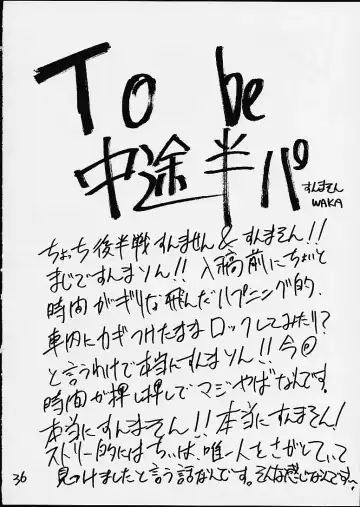 To be
中途半パ
すんません
WAKA
ちょっち後半戦すんません&すんません!!
まじですんません!! 入稿前にちょいと
時間がギリな飛んだハプニング的、
車内にカギつけたままロックしてみたり?
と言うわけで本当にすんません!!今回
時間が押し押しでマジやばなんです。
本当にすんません!!本当にすんません!
ストーリー的にはちぃは、唯一人をさがしていて
見つけましたと言う話なんです。そんな感じなんです〜
36